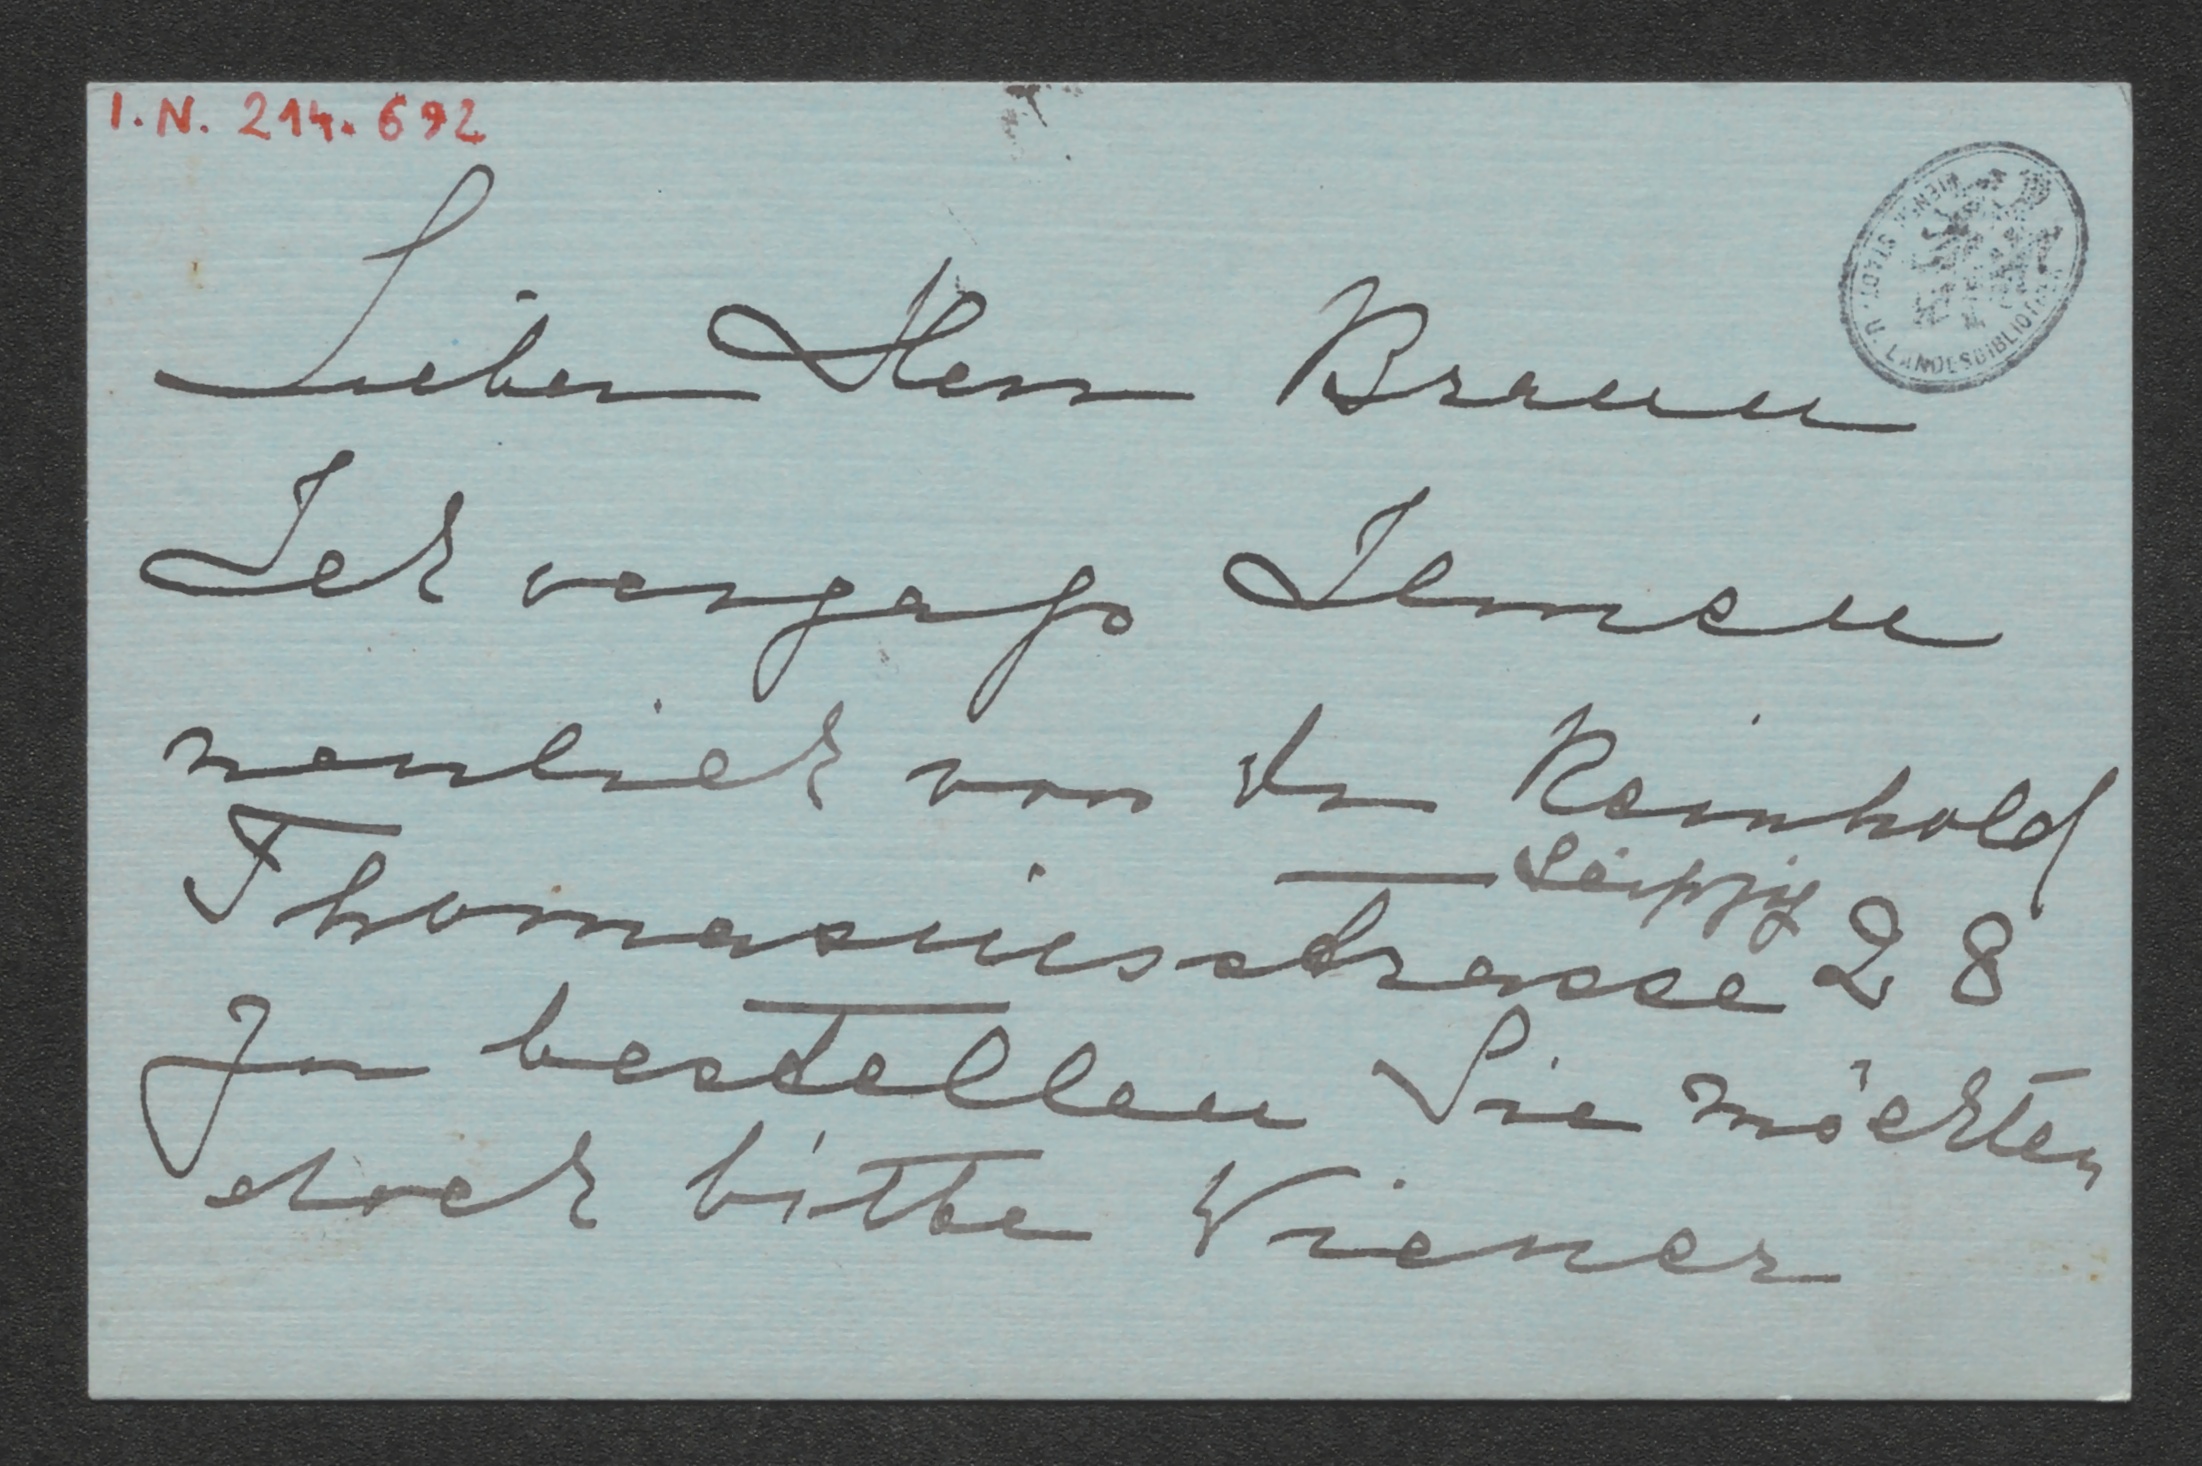 I. N. 214.692
WIENER STADT. U. LANDESBIBLIOTHEK
Lieber Herr Braun
Ich vergaß Ihnen
neulich von Dr Reinhold
Leipzig
Thomasiusstrasse 28
zu bestellen Sie möchten
doch bitte Wiener